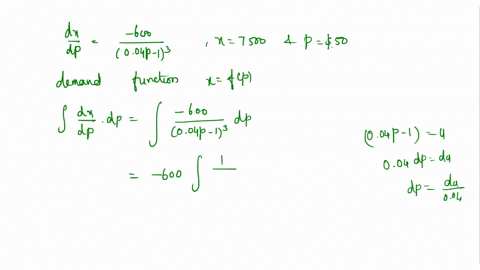 dx/dp = -600/(0.04p-1)³ , x=7500 & p=$.50
demand function x=f(p)
∫ dx/dp · dp = ∫ -600/(0.04p-1)³ dp
= -600 ∫ 1/
(0.04p-1) = u
0.04 dp = du
dp = du/0.04